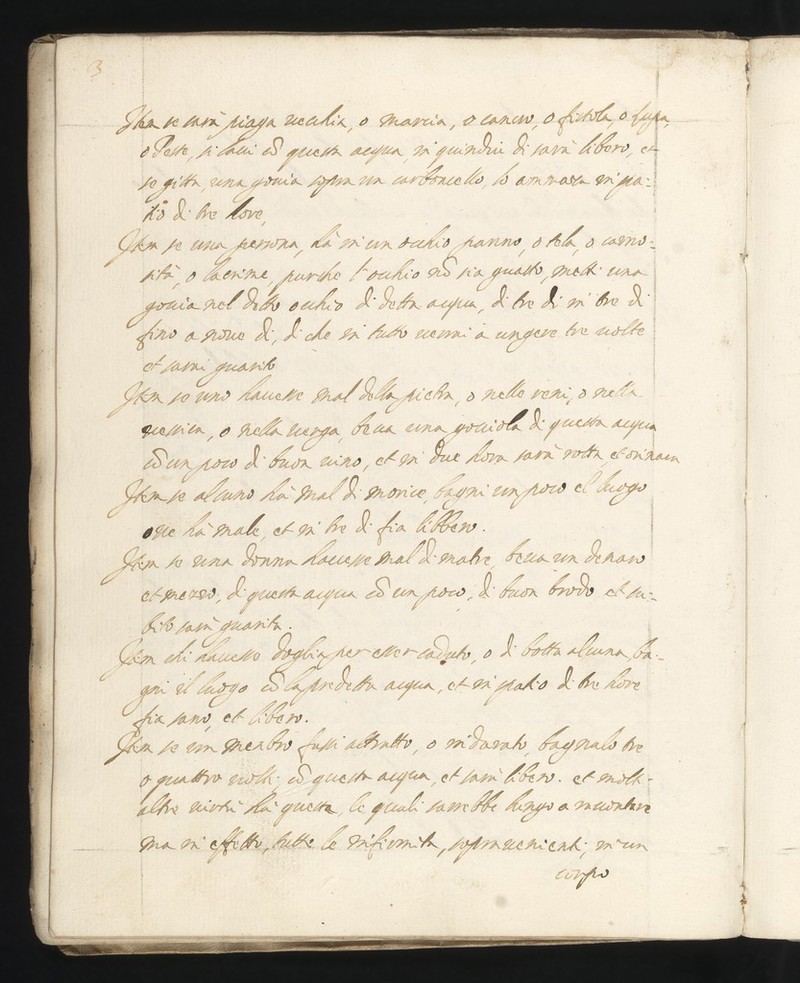 3
Item se sarà piaga vechia, o marcia, o cancro, o fistola, o lupa,
o Peste, si lavi cō questa acqua, in quindici dì sarà libero, et
se gitta una goccia sopra un carboncello, lo ammazza in spa-
tio di tre hore,
Item se una persona, hà in un occhio panno, o tela, o carno-
sità, o lacrime, purche l'occhio nō sia guasto, metti una
goccia nel detto occhio di detta acqua, di tre dì in tre dì
fino a nove dì, di che in tutto verrai à ungere tre volte
et sarai guarito
Item se uno havesse mal della pietra, o nelle reni, o nella
vessica, o nella verga, beva una gocciola di questa acqua
cō un poco di buon vino, et in due hora sarà rotta, et orinara
Item se alcuno hà mal di morice, bagni un poco el luogo
ove hà male, et in tre dì fia libbero.
Item se una donna havesse mal di matre, beva un denaro
et mezzo, di questa acqua cō un poco, di buon brodo et su-
bito sarà guarita.
Item chi havesse doglia per esser caduto, o di botta alcuna, ba-
gni il luogo cō la predetta acqua, et in spatio di tre hore
fia sano, et libero.
Item se un membro fussi attratto, o indurato, bagnalo tre
o quattro volte cō questa acqua, et sarà libero. et molt-
altre virtù hà questa, le quali sarrebbe lungo a racontare
ma in effetto, tutte le infirmità, sopravenienti, in un
corpo